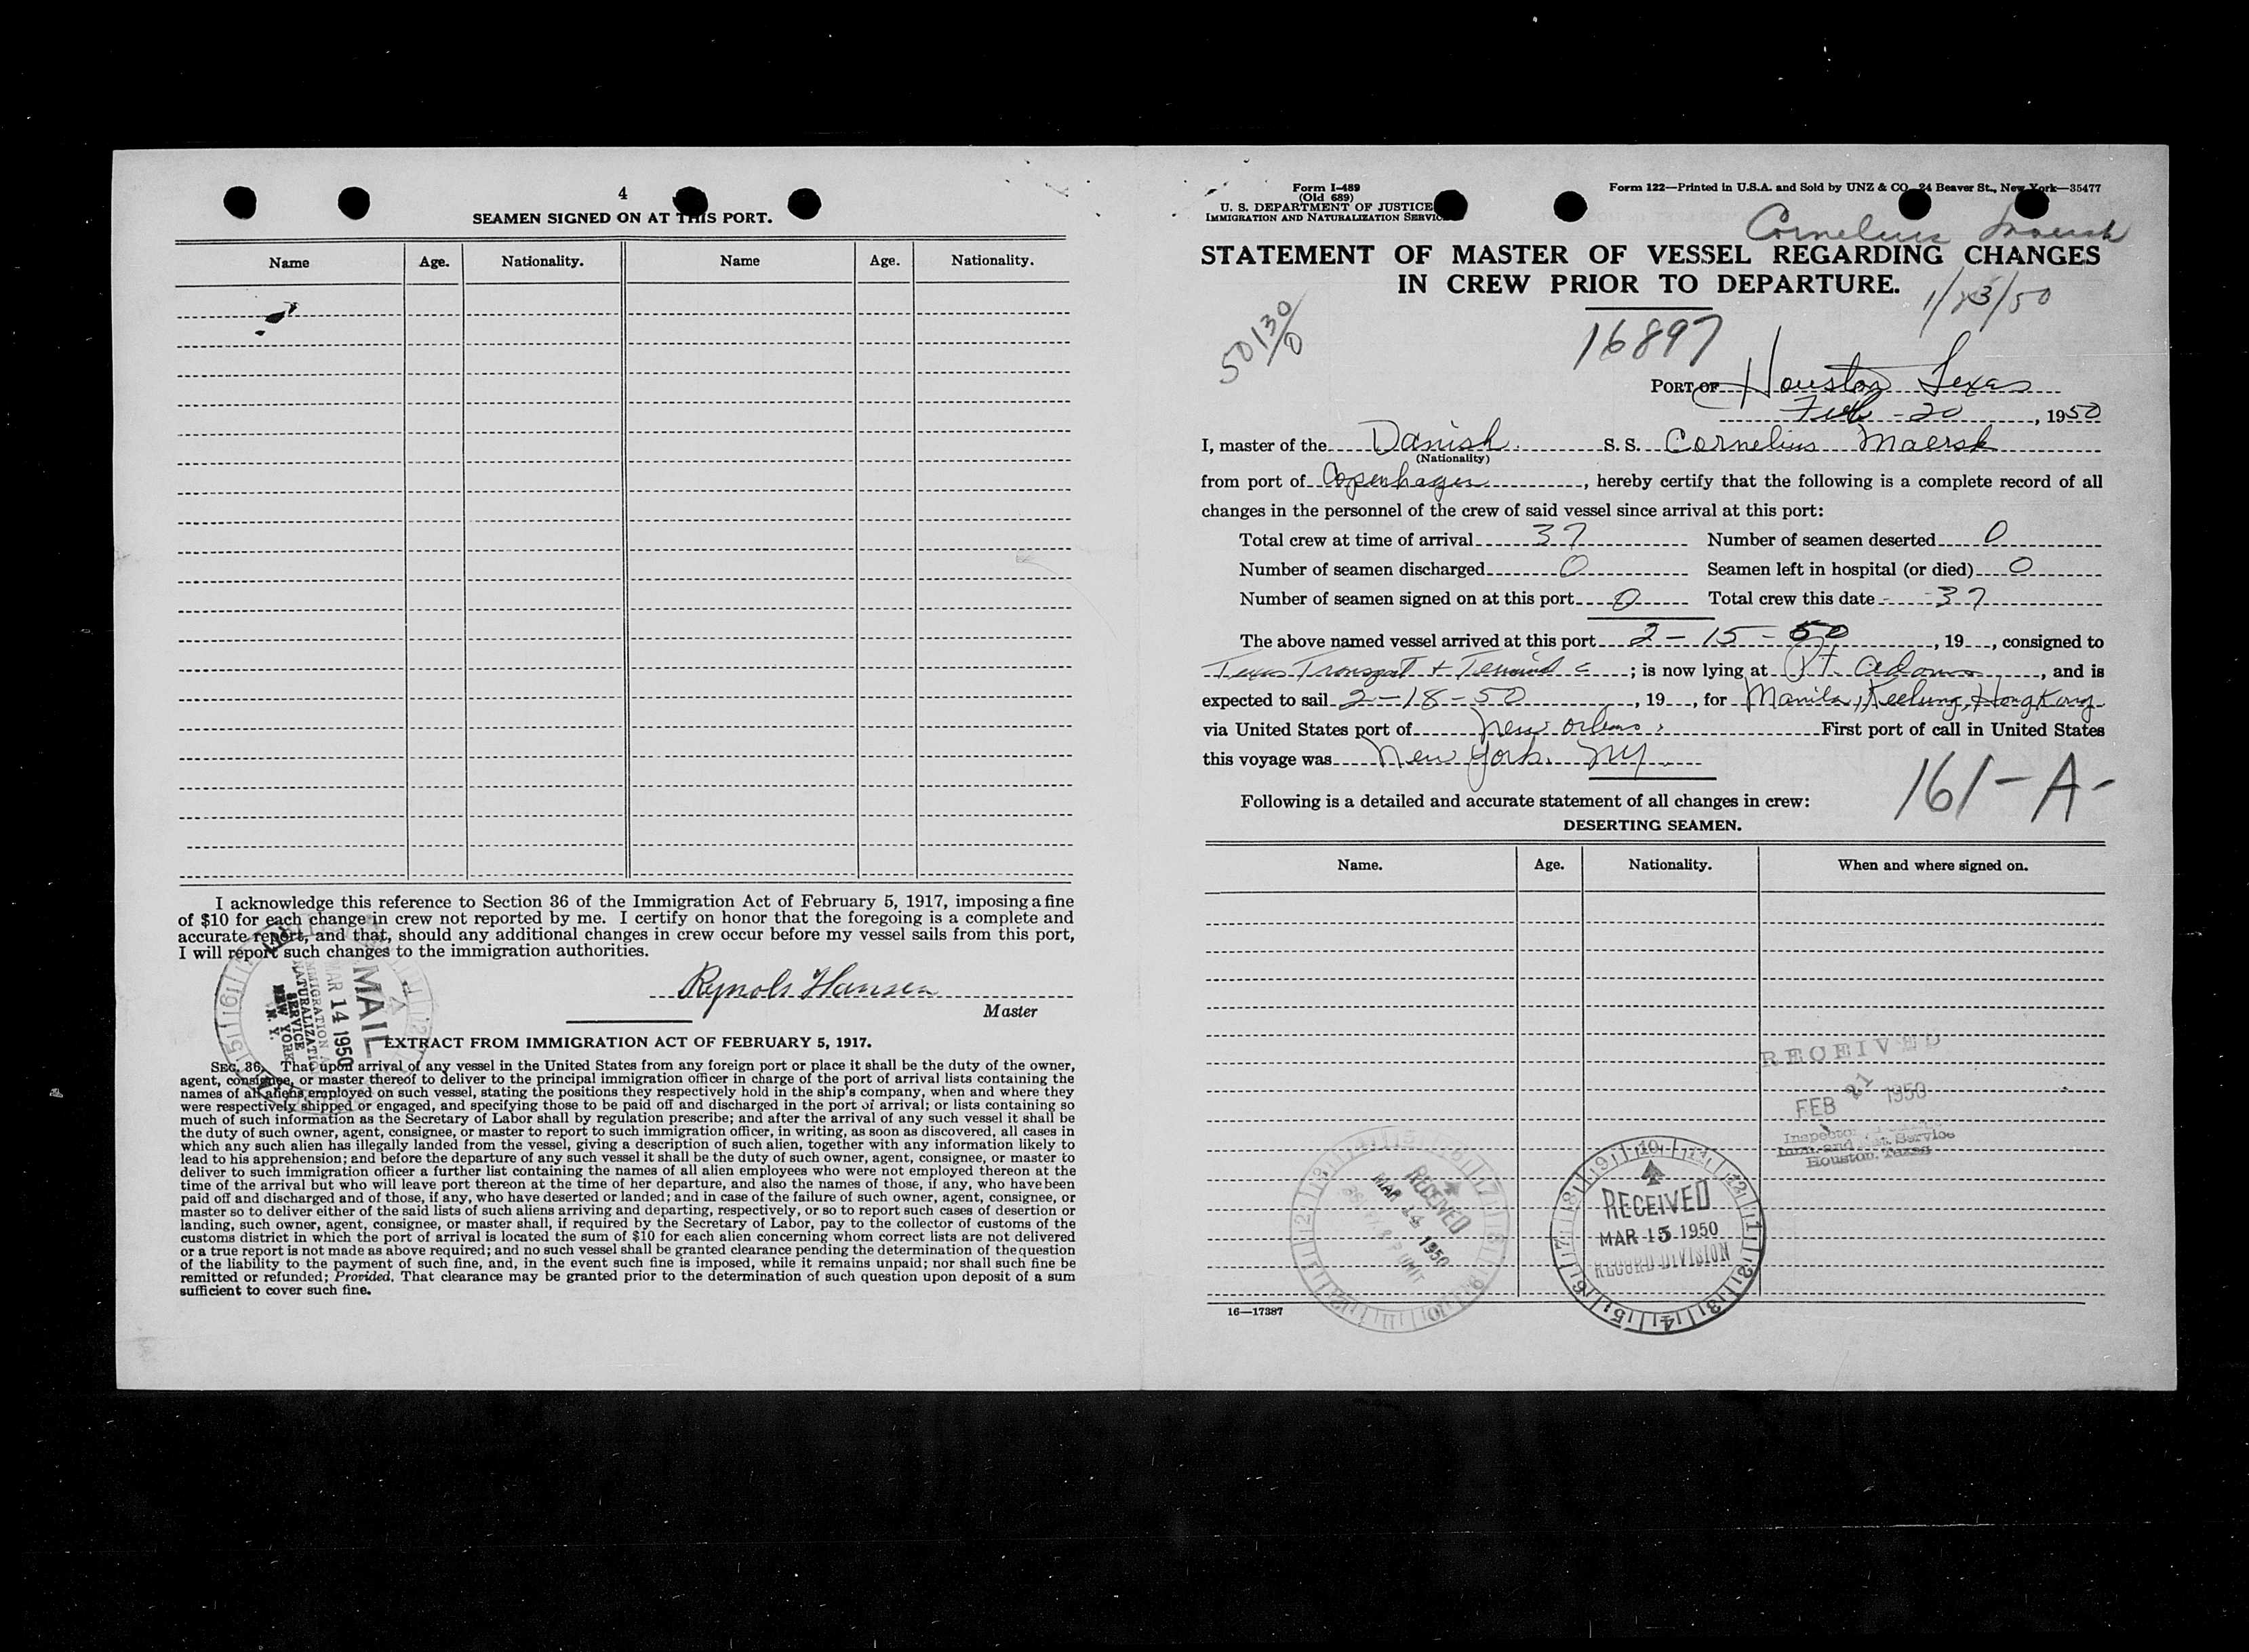 4
SEAMEN SIGNED ON AT THIS PORT.
Name Age. Nationality. Name Age. Nationality.
I acknowledge this reference to Section 36 of the Immigration Act of February 5, 1917, imposing a fine
of $10 for each change in crew not reported by me. I certify on honor that the foregoing is a complete and
accurate report, and that, should any additional changes in crew occur before my vessel sails from this port,
I will report such changes to the immigration authorities.
Hansen
Master
MAIL
MAR 14 1950
IMMIGRATION
NATURALIZATION
SERVICE
NEW YORK
N. Y.
EXTRACT FROM IMMIGRATION ACT OF FEBRUARY 5, 1917.
SEC. 36. That upon arrival of any vessel in the United States from any foreign port or place it shall be the duty of the owner,
agent, consignee, or master thereof to deliver to the principal immigration officer in charge of the port of arrival lists containing the
names of all aliens employed on such vessel, stating the positions they respectively hold in the ship's company, when and where they
were respectively shipped or engaged, and specifying those to be paid off and discharged in the port of arrival; or lists containing so
much of such information as the Secretary of Labor shall by regulation prescribe; and after the arrival of any such vessel it shall be
the duty of such owner, agent, consignee, or master to report to such immigration officer, in writing, as soon as discovered, all cases in
which any such alien has illegally landed from the vessel, giving a description of such alien, together with any information likely to
lead to his apprehension; and before the departure of any such vessel it shall be the duty of such owner, agent, consignee, or master to
deliver to such immigration officer a further list containing the names of all alien employees who were not employed thereon at the
time of the arrival but who will leave port thereon at the time of her departure, and also the names of those, if any, who have been
paid off and discharged and of those, if any, who have deserted or landed; and in case of the failure of such owner, agent, consignee, or
master so to deliver either of the said lists of such aliens arriving and departing, respectively, or so to report such cases of desertion or
landing, such owner, agent, consignee, or master shall, if required by the Secretary of Labor, pay to the collector of customs of the
customs district in which the port of arrival is located the sum of $10 for each alien concerning whom correct lists are not delivered
or a true report is not made as above required; and no such vessel shall be granted clearance pending the determination of the question
of the liability to the payment of such fine, and, in the event such fine is imposed, while it remains unpaid; nor shall such fine be
remitted or refunded; Provided, That clearance may be granted prior to the determination of such question upon deposit of a sum
sufficient to cover such fine.
Form I-489
(Old 689)
U. S. DEPARTMENT OF JUSTICE
IMMIGRATION AND NATURALIZATION SERVICE
Form 122—Printed in U.S.A. and Sold by UNZ & CO., 24 Beaver St., New York—35477
Cornelius Maersk
STATEMENT OF MASTER OF VESSEL REGARDING CHANGES
IN CREW PRIOR TO DEPARTURE.
1/23/50
50130/0
16897
PORT OF Houston Texas
Feb - 20, 1950
I, master of the Danish S. S. Cornelius Maersk
(Nationality)
from port of Copenhagen, hereby certify that the following is a complete record of all
changes in the personnel of the crew of said vessel since arrival at this port:
Total crew at time of arrival 37 Number of seamen deserted 0
Number of seamen discharged 0 Seamen left in hospital (or died) 0
Number of seamen signed on at this port 0 Total crew this date 37
The above named vessel arrived at this port 2-15-50, 19, consigned to
Texas Transport + Terminal C; is now lying at Pt. Adams, and is
expected to sail 2-18-50, 19, for Manila, Keelung, Hong Kong
via United States port of New Orleans. First port of call in United States
this voyage was New York. NY.
161-A-
Following is a detailed and accurate statement of all changes in crew:
DESERTING SEAMEN.
Name. Age. Nationality. When and where signed on.
RECEIVED
FEB 21 1950
Inspector
Imm. and Nat. Service
Houston, Texas
RECEIVED
MAR 14 1950
RECEIVED
MAR 15 1950
RECORD DIVISION
16—17387